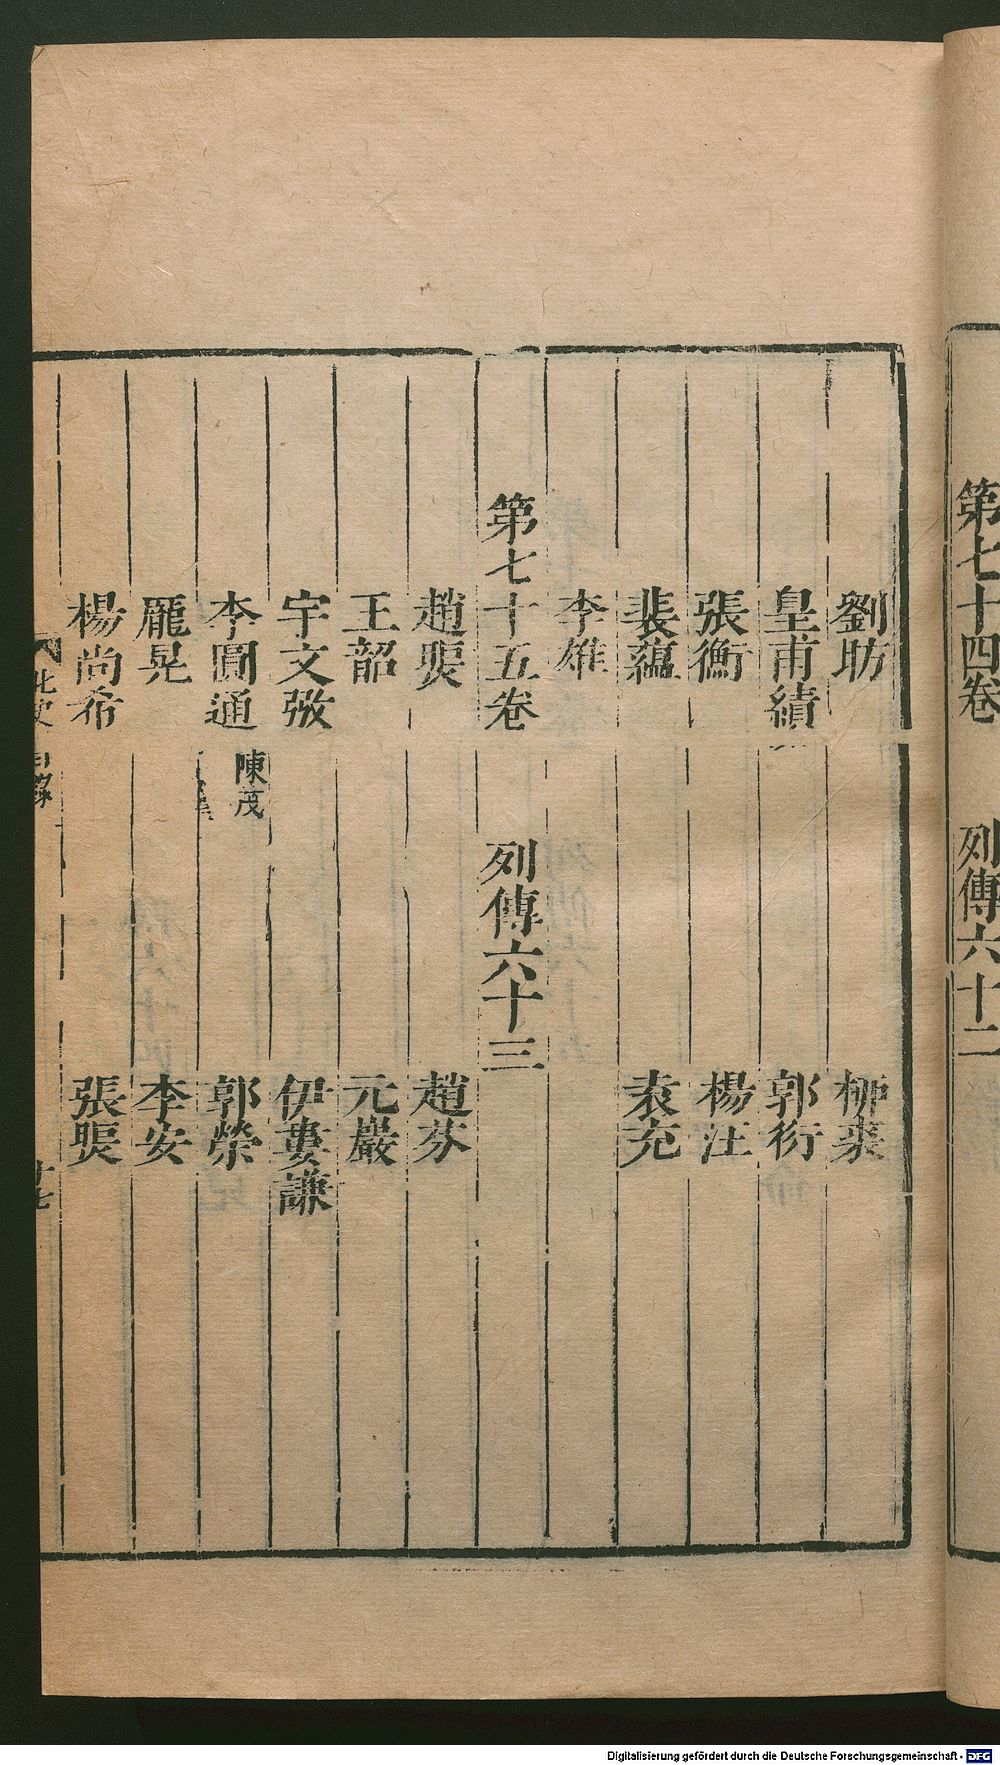 第七十四卷　列傳六十二
劉昉　柳裘
皇甫績　郭衍
張衡　楊汪
裴蘊　袁充
李雄
第七十五卷　列傳六十三
趙煚　趙芬
王韶　元巖
宇文㢸　伊婁謙
李圓通　陳茂　郭榮
龐晃　李安
楊尚希　張煚
北史　目錄　十七
Digitalisierung gefördert durch die Deutsche Forschungsgemeinschaft - DFG